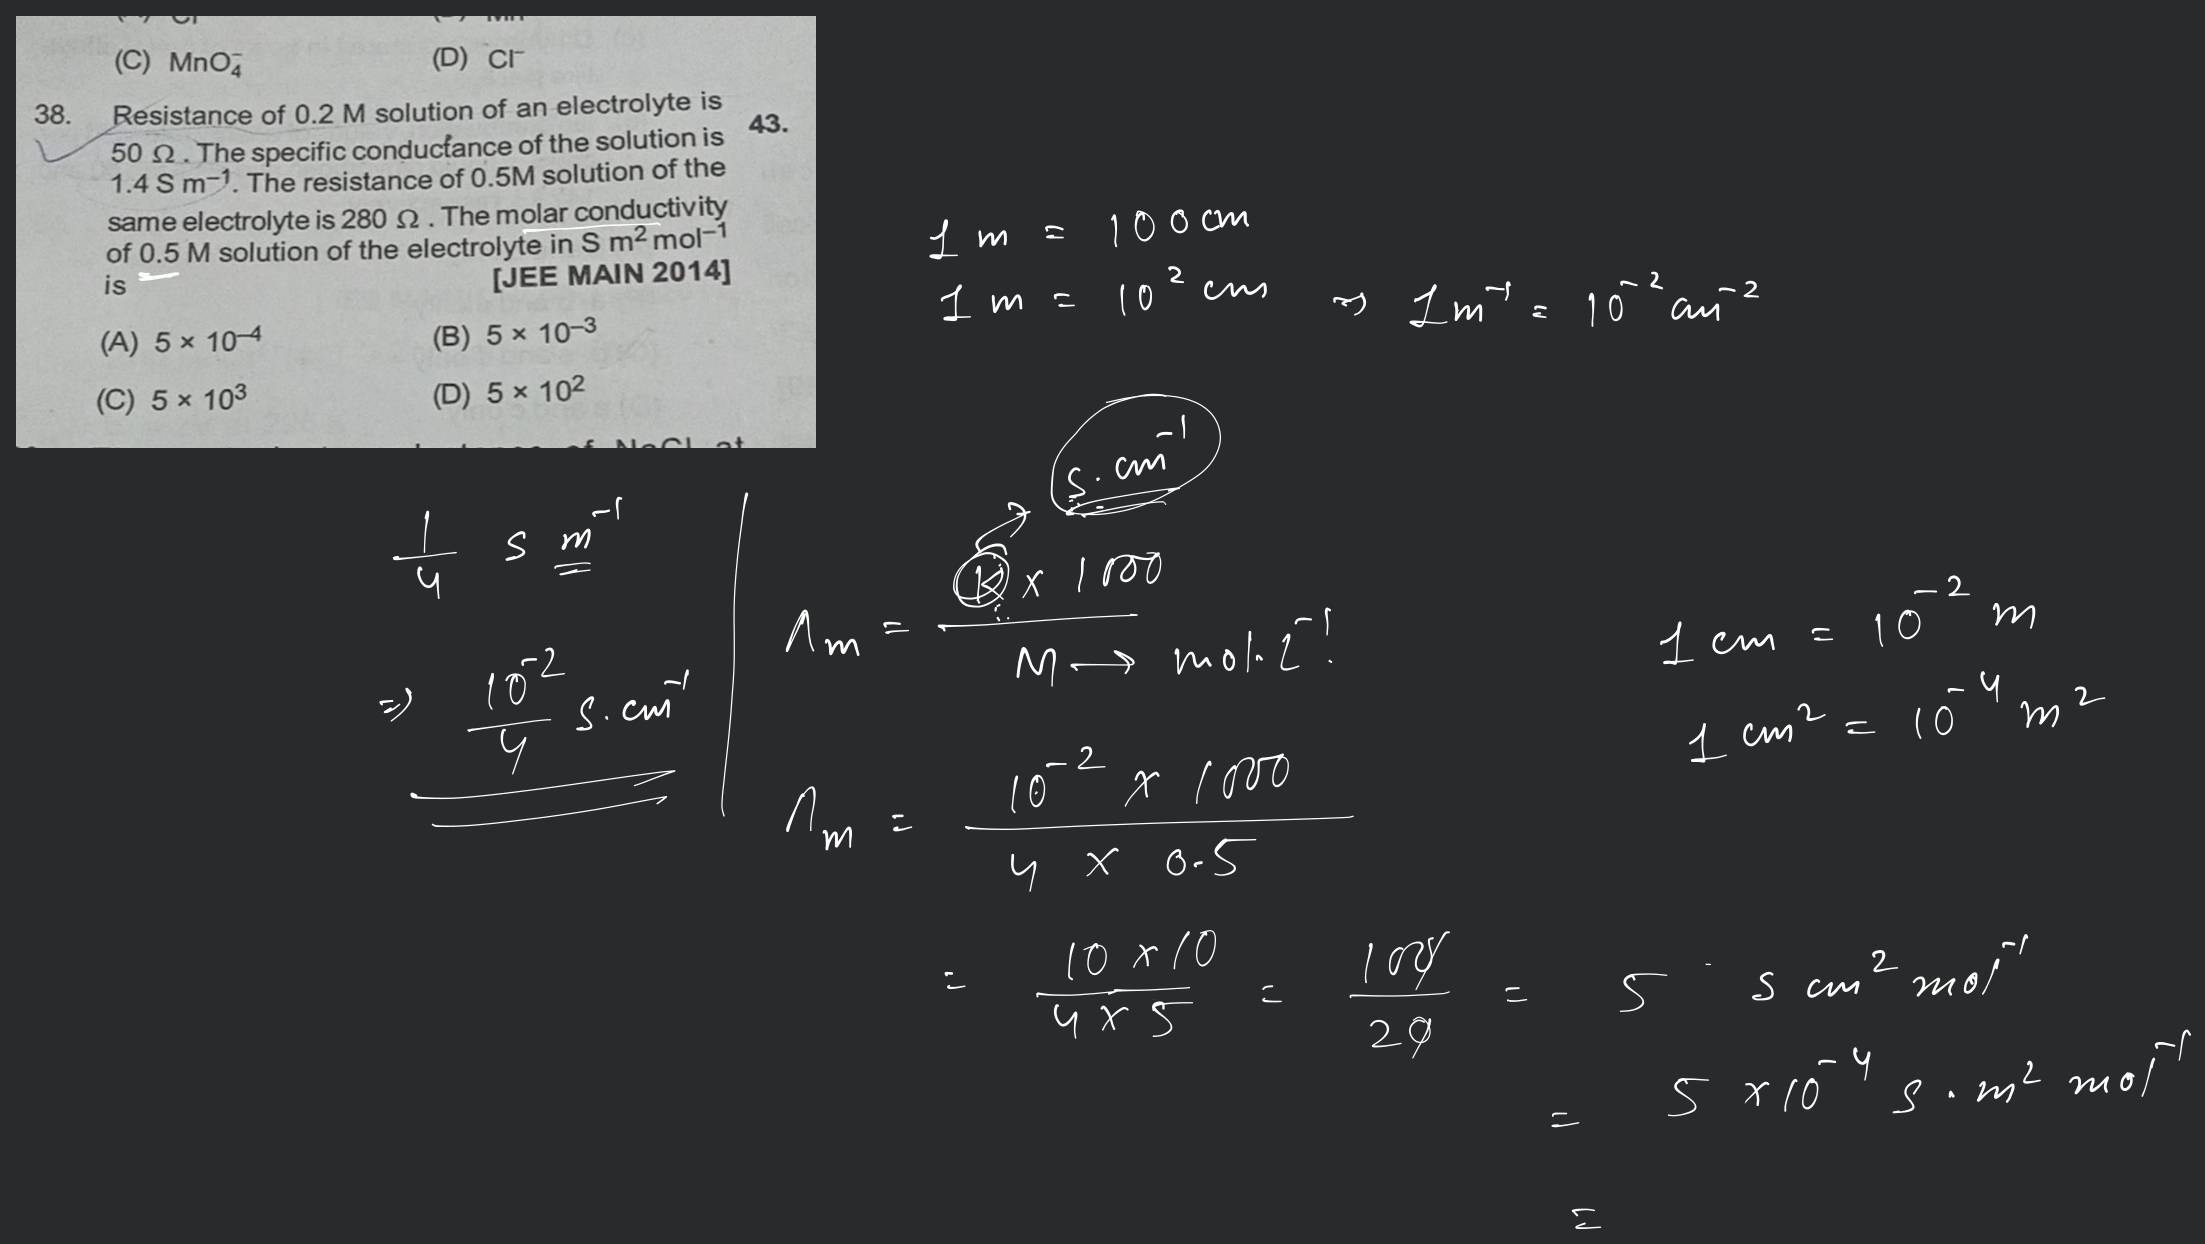 (C) MnO₄⁻ (D) Cl⁻
38. Resistance of 0.2 M solution of an electrolyte is
50 Ω. The specific conductance of the solution is
1.4 S m⁻¹. The resistance of 0.5M solution of the
same electrolyte is 280 Ω. The molar conductivity
of 0.5 M solution of the electrolyte in S m² mol⁻¹
is [JEE MAIN 2014]
(A) 5 × 10⁻⁴ (B) 5 × 10⁻³
(C) 5 × 10³ (D) 5 × 10²
43.
1 m = 100 cm
1 m = 10² cm ⇒ 1 m⁻¹ = 10⁻² cm⁻²
1/4 S m⁻¹
⇒ 10⁻²/4 S.cm⁻¹
S.cm⁻¹
Λm = K × 1000 / M → mol.L⁻¹
Λm = 10⁻² × 1000 / 4 × 0.5
= 10 × 10 / 4 × 5 = 100/20 = 5 S cm² mol⁻¹
= 5 × 10⁻⁴ S.m² mol⁻¹
=
1 cm = 10⁻² m
1 cm² = 10⁻⁴ m²